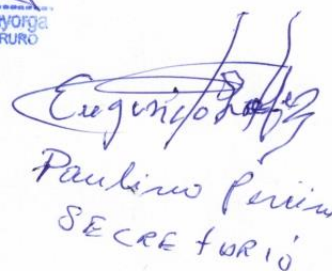 yorga
RURO
Eugenio
Paulino Pereira
SECRETARIO